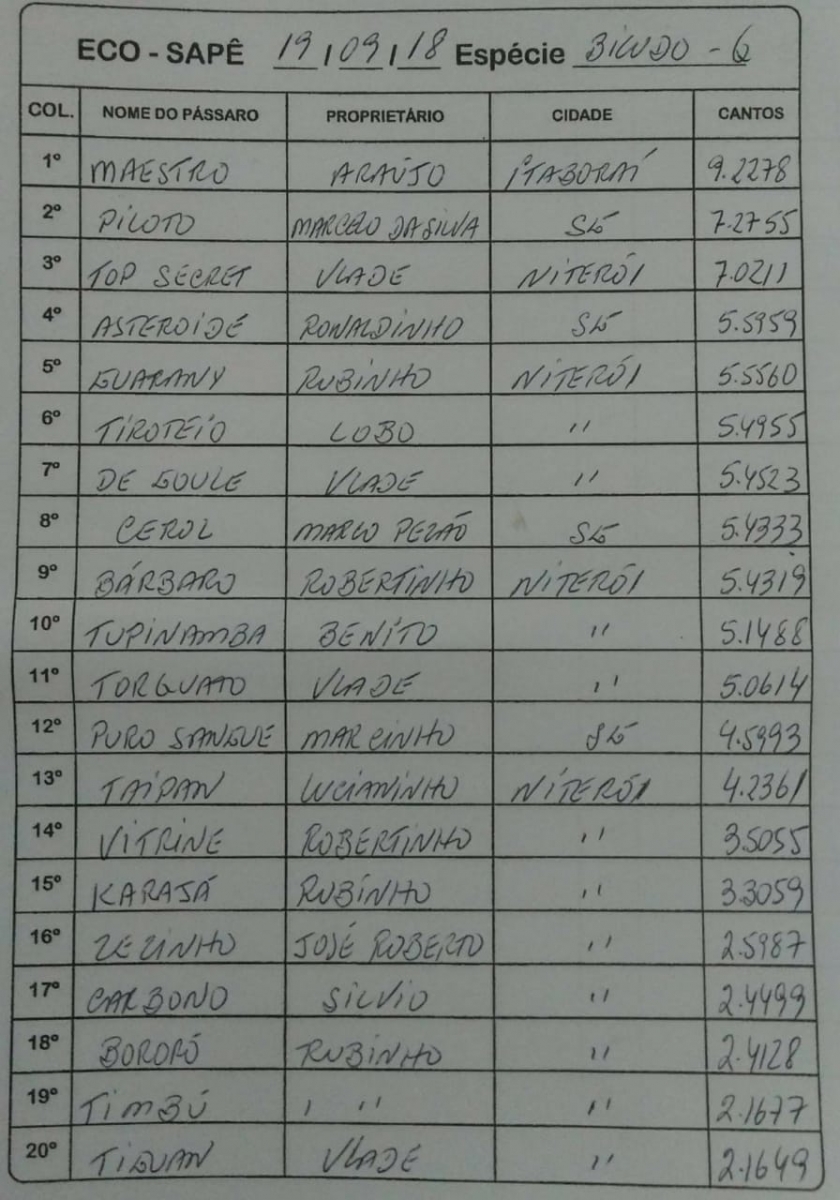 ECO - SAPÊ 19/09/18 Espécie BICUDO - G
COL. NOME DO PÁSSARO PROPRIETÁRIO CIDADE CANTOS
1º MAESTRO ARAÚJO ITABORAÍ 9.2278
2º PILOTO MARCELO DA SILVA SG 7.2755
3º TOP SECRET VLADE NITERÓI 7.0211
4º ASTEROIDE RONALDINHO SG 5.5959
5º GUARANY RUBINHO NITERÓI 5.5560
6º TIROTEIO LOBO '' 5.4955
7º DE GOULE VLADE '' 5.4523
8º CEROL MARCO PEZÃO SG 5.4333
9º BÁRBARO ROBERTINHO NITERÓI 5.4319
10º TUPINAMBA BENITO '' 5.1488
11º TORGUATO VLADE '' 5.0614
12º PURO SANGUE MARCINHO SG 4.5993
13º TAIPAN LUCIANINHO NITERÓI 4.2361
14º VITRINE ROBERTINHO '' 3.5055
15º KARAJÁ RUBINHO '' 3.3059
16º ZEZINHO JOSÉ ROBERTO '' 2.5987
17º CARBONO SILVIO '' 2.4499
18º BORORÓ RUBINHO '' 2.4128
19º TIMBÚ ' '' '' 2.1677
20º TIGUAN VLADE '' 2.1649